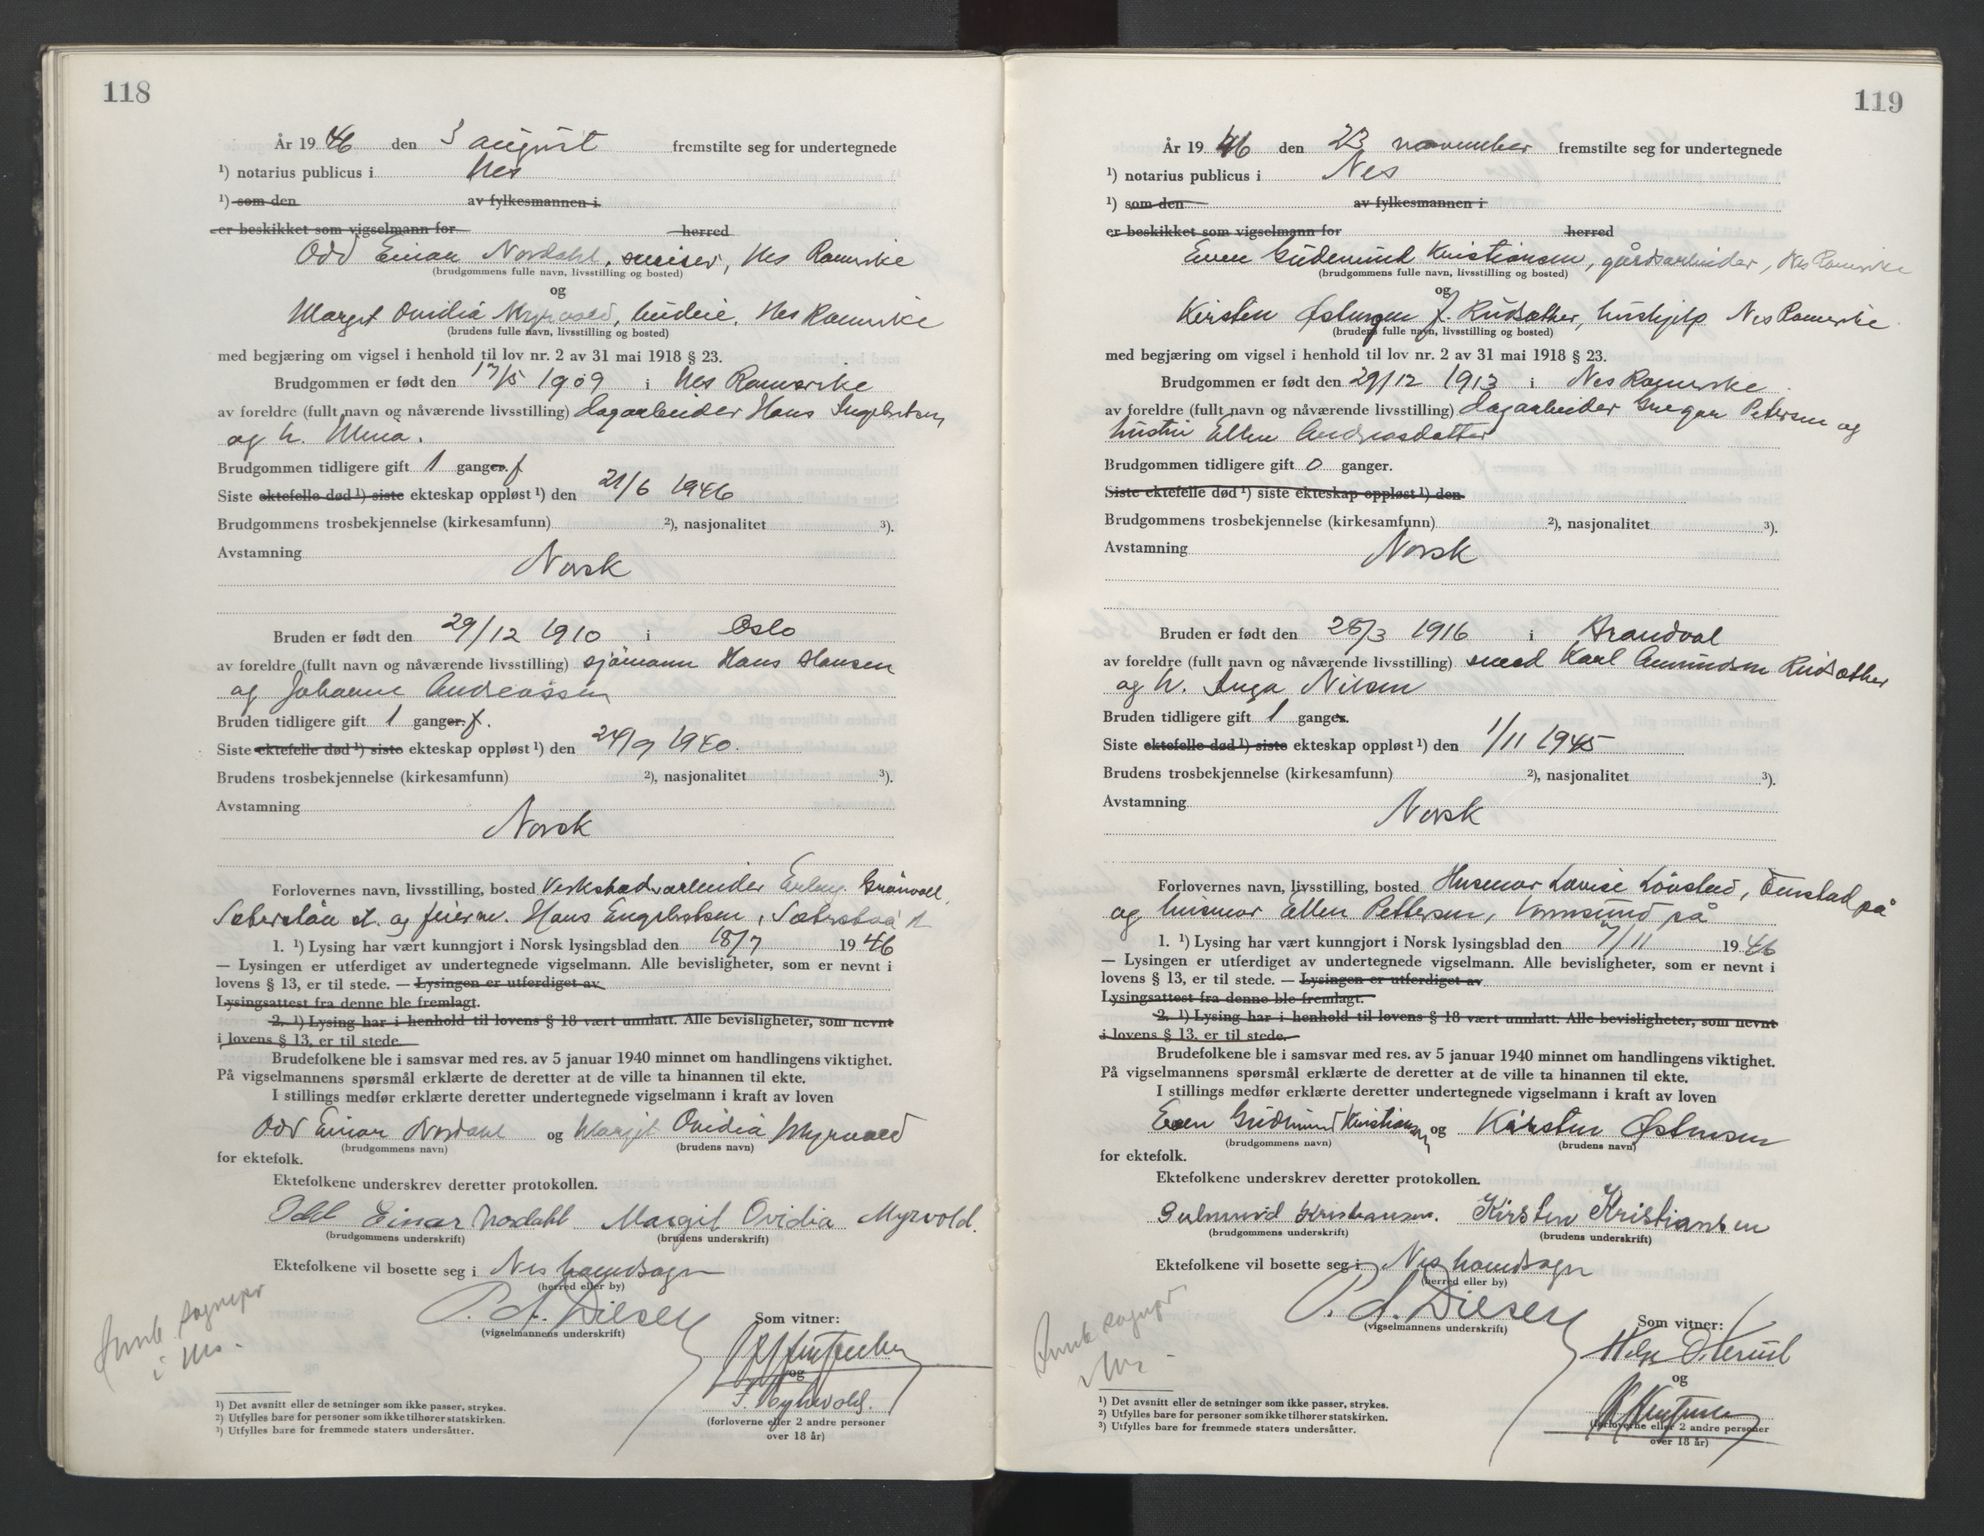 118
År 1946 den 3 august fremstilte seg for undertegnede
¹) notarius publicus i Nes
¹) som den av fylkesmannen i
er beskikket som vigselmann for herred
Odd Einar Nordahl, murer, Nes Romerike
(brudgommens fulle navn, livsstilling og bosted)
og
Margit Ovidia Myrvold, Nes Romerike
(brudens fulle navn, livsstilling og bosted)
med begjæring om vigsel i henhold til lov nr. 2 av 31 mai 1918 § 23.
Brudgommen er født den 17/5 1909 i Nes Romerike
av foreldre (fullt navn og nåværende livsstilling) dagarbeider Hans Ingebretsen
og h. Mina.
Brudgommen tidligere gift 1 ganger. f
Siste ektefelle død ¹) siste ekteskap oppløst ¹) den 21/6 1946
Brudgommens trosbekjennelse (kirkesamfunn) ²), nasjonalitet ³).
Avstamning
Norsk
Bruden er født den 29/12 1910 i Oslo
av foreldre (fullt navn og nåværende livsstilling) sjömann Hans Hansen
og Johanne Andreassen
Bruden tidligere gift 1 ganger. f.
Siste ektefelle død ¹) siste ekteskap oppløst ¹) den 24/9 1940.
Brudens trosbekjennelse (kirkesamfunn) ²), nasjonalitet ³).
Avstamning
Norsk
Forlovernes navn, livsstilling, bosted Verkstedarbeider Erling Grönvoll,
Sæterstöa st. og Hans Engebretsen, Sæterstöa st
1. ¹) Lysing har vært kunngjort i Norsk lysingsblad den 18/7 1946
— Lysingen er utferdiget av undertegnede vigselmann. Alle bevisligheter, som er nevnt i
lovens § 13, er til stede. — Lysingen er utferdiget av
Lysingsattest fra denne ble fremlagt.
2. ¹) Lysing har i henhold til lovens § 18 vært unnlatt. Alle bevisligheter, som nevnt
i lovens § 13, er til stede.
Brudefolkene ble i samsvar med res. av 5 januar 1940 minnet om handlingens viktighet.
På vigselmannens spørsmål erklærte de deretter at de ville ta hinannen til ekte.
I stillings medfør erklærte deretter undertegnede vigselmann i kraft av loven
Odd Einar Nordahl og Margit Ovidia Myrvold
(brudgommens navn) (brudens navn)
for ektefolk.
Ektefolkene underskrev deretter protokollen.
Odd Einar Nordahl Margit Ovidia Myrvold.
(brudgommens underskrift) (brudens underskrift)
Ektefolkene vil bosette seg i Nes hovedsogn
(herred eller by)
P. A. Diesen
(vigselmannens underskrift)
Som vitner:
og
(forloverne eller 2 andre personer
over 18 år)
sognepr
i Nes.
¹) Det avsnitt eller de setninger som ikke passer, strykes.
²) Utfylles bare for personer som ikke tilhører statskirken.
³) Utfylles bare for fremmede staters undersåtter.
119
År 1946 den 23 november fremstilte seg for undertegnede
¹) notarius publicus i Nes
¹) som den av fylkesmannen i
er beskikket som vigselmann for herred
Even Gudmund Kristiansen, gårdsarbeider, Nes Romerike
(brudgommens fulle navn, livsstilling og bosted)
og
Kirsten Østensen f. Rudsæther, hushjelp Nes Romerike
(brudens fulle navn, livsstilling og bosted)
med begjæring om vigsel i henhold til lov nr. 2 av 31 mai 1918 § 23.
Brudgommen er født den 29/12 1913 i Nes Romerike
av foreldre (fullt navn og nåværende livsstilling) dagarbeider Gregar Petersen og
hustru Ellen Andreasdatter
Brudgommen tidligere gift 0 ganger.
Siste ektefelle død ¹) siste ekteskap oppløst ¹) den
Brudgommens trosbekjennelse (kirkesamfunn) ²), nasjonalitet ³).
Avstamning
Norsk
Bruden er født den 28/3 1916 i Brandval
av foreldre (fullt navn og nåværende livsstilling) smed Karl Amundsen Rudsæther
og h. Inga Nilsen
Bruden tidligere gift 1 ganger.
Siste ektefelle død ¹) siste ekteskap oppløst ¹) den 1/11 1945
Brudens trosbekjennelse (kirkesamfunn) ²), nasjonalitet ³).
Avstamning
Norsk
Forlovernes navn, livsstilling, bosted Husmor Lovise Lövstad, på
og husmor Ellen Pettersen, Vormsund på
1. ¹) Lysing har vært kunngjort i Norsk lysingsblad den 7/11 1946
— Lysingen er utferdiget av undertegnede vigselmann. Alle bevisligheter, som er nevnt i
lovens § 13, er til stede. — Lysingen er utferdiget av
Lysingsattest fra denne ble fremlagt.
2. ¹) Lysing har i henhold til lovens § 18 vært unnlatt. Alle bevisligheter, som nevnt
i lovens § 13, er til stede.
Brudefolkene ble i samsvar med res. av 5 januar 1940 minnet om handlingens viktighet.
På vigselmannens spørsmål erklærte de deretter at de ville ta hinannen til ekte.
I stillings medfør erklærte deretter undertegnede vigselmann i kraft av loven
Even Gudmund Kristiansen og Kirsten Østensen
(brudgommens navn) (brudens navn)
for ektefolk.
Ektefolkene underskrev deretter protokollen.
Gudmund Kristiansen. Kirsten Kristiansen
(brudgommens underskrift) (brudens underskrift)
Ektefolkene vil bosette seg i Nes hovedsogn
(herred eller by)
P. A. Diesen
(vigselmannens underskrift)
Som vitner:
og
(forloverne eller 2 andre personer
over 18 år)
sognepr
¹) Det avsnitt eller de setninger som ikke passer, strykes.
²) Utfylles bare for personer som ikke tilhører statskirken.
³) Utfylles bare for fremmede staters undersåtter.